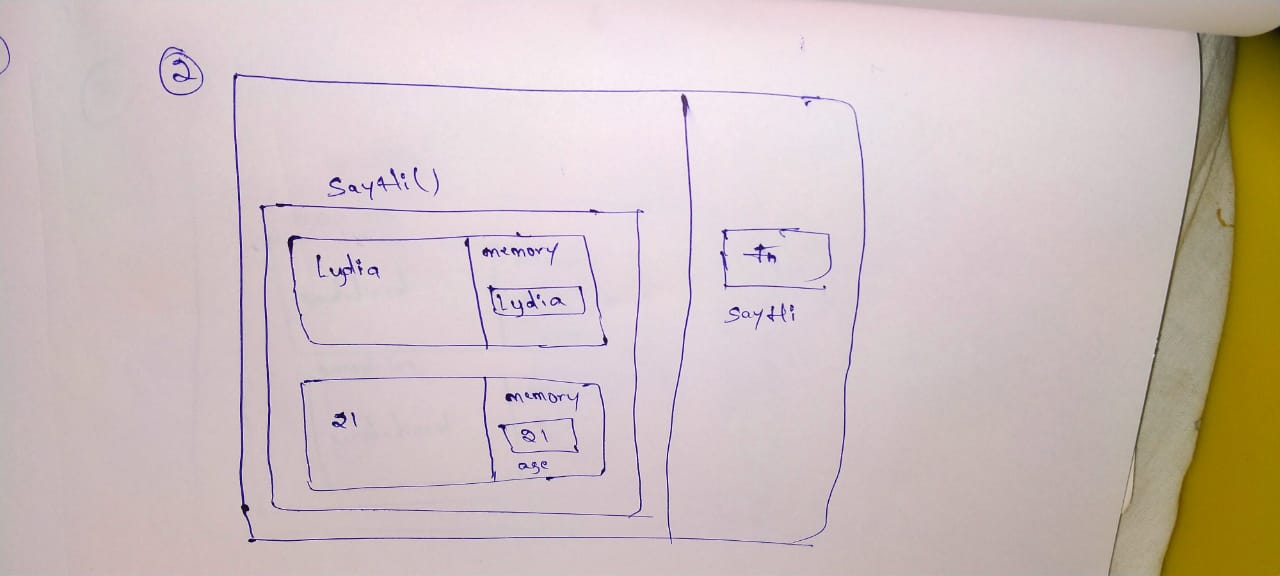 2
SayHi()
Lydia
memory
Lydia
21
memory
21
age
fn
SayHi